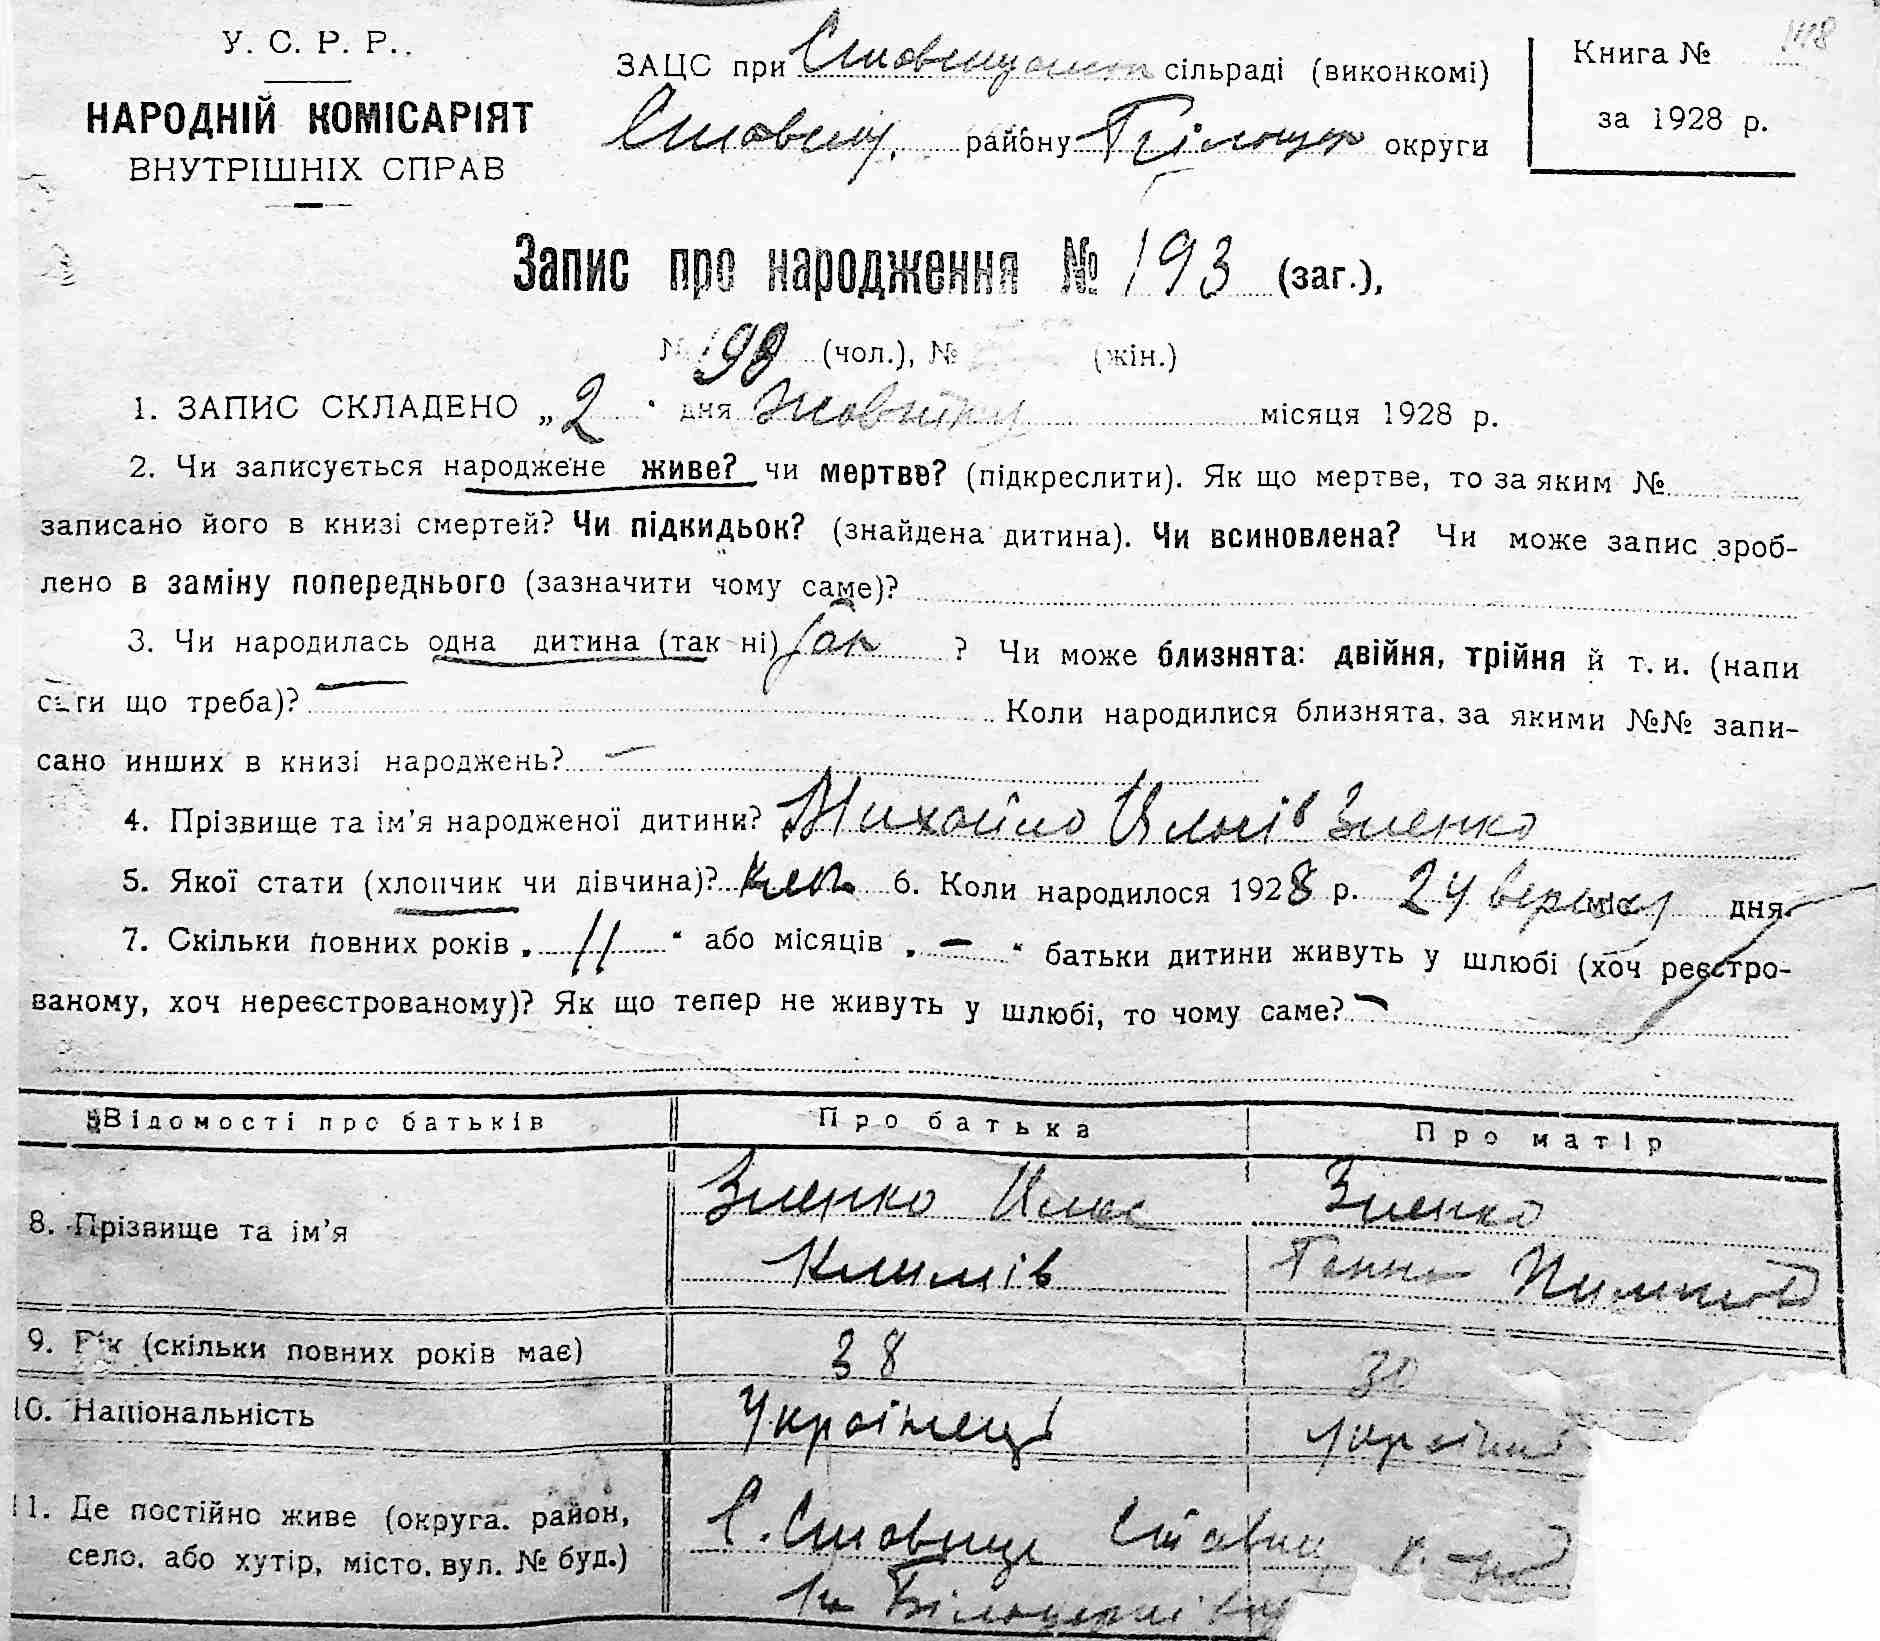 У. С. Р. Р.
НАРОДНІЙ КОМІСАРІЯТ
ВНУТРІШНІХ СПРАВ
ЗАЦС при Ставищанск сільраді (виконкомі)
Ставищ. району Білоцер округи
Книга № 118
за 1928 р.
Запис про народження № 193 (заг.),
№ 198 (чол.), № (жін.)
1. ЗАПИС СКЛАДЕНО „2" дня Жовтня місяця 1928 р.
2. Чи записується народжене живе? чи мертве? (підкреслити). Як що мертве, то за яким №
записано його в книзі смертей? Чи підкидьок? (знайдена дитина). Чи всиновлена? Чи може запис зроб-
лено в заміну попереднього (зазначити чому саме)?
3. Чи народилась одна дитина (так ні) так ? Чи може близнята: двійня, трійня й т. и. (напи
сати що треба)? — Коли народилися близнята, за якими №№ запи-
сано инших в книзі народжень? —
4. Прізвище та ім'я народженої дитини? Михайло Ильків Зленко
5. Якої стати (хлопчик чи дівчина)? хлоп. 6. Коли народилося 1928 р. 24 вересня міс дня
7. Скільки повних років „11" або місяців „—" батьки дитини живуть у шлюбі (хоч реєстро-
ваному, хоч нереєстрованому)? Як що тепер не живуть у шлюбі, то чому саме? —
Відомості про батьків Про батька Про матір
8. Прізвище та ім'я Зленко Илько Зленко
Климів Ганна
9. Вік (скільки повних років має) 38 30
10. Національність Українец українк
11. Де постійно живе (округа. район, С. Ставище Ставищ
село. або хутір, місто. вул. № буд.) Білоцерків